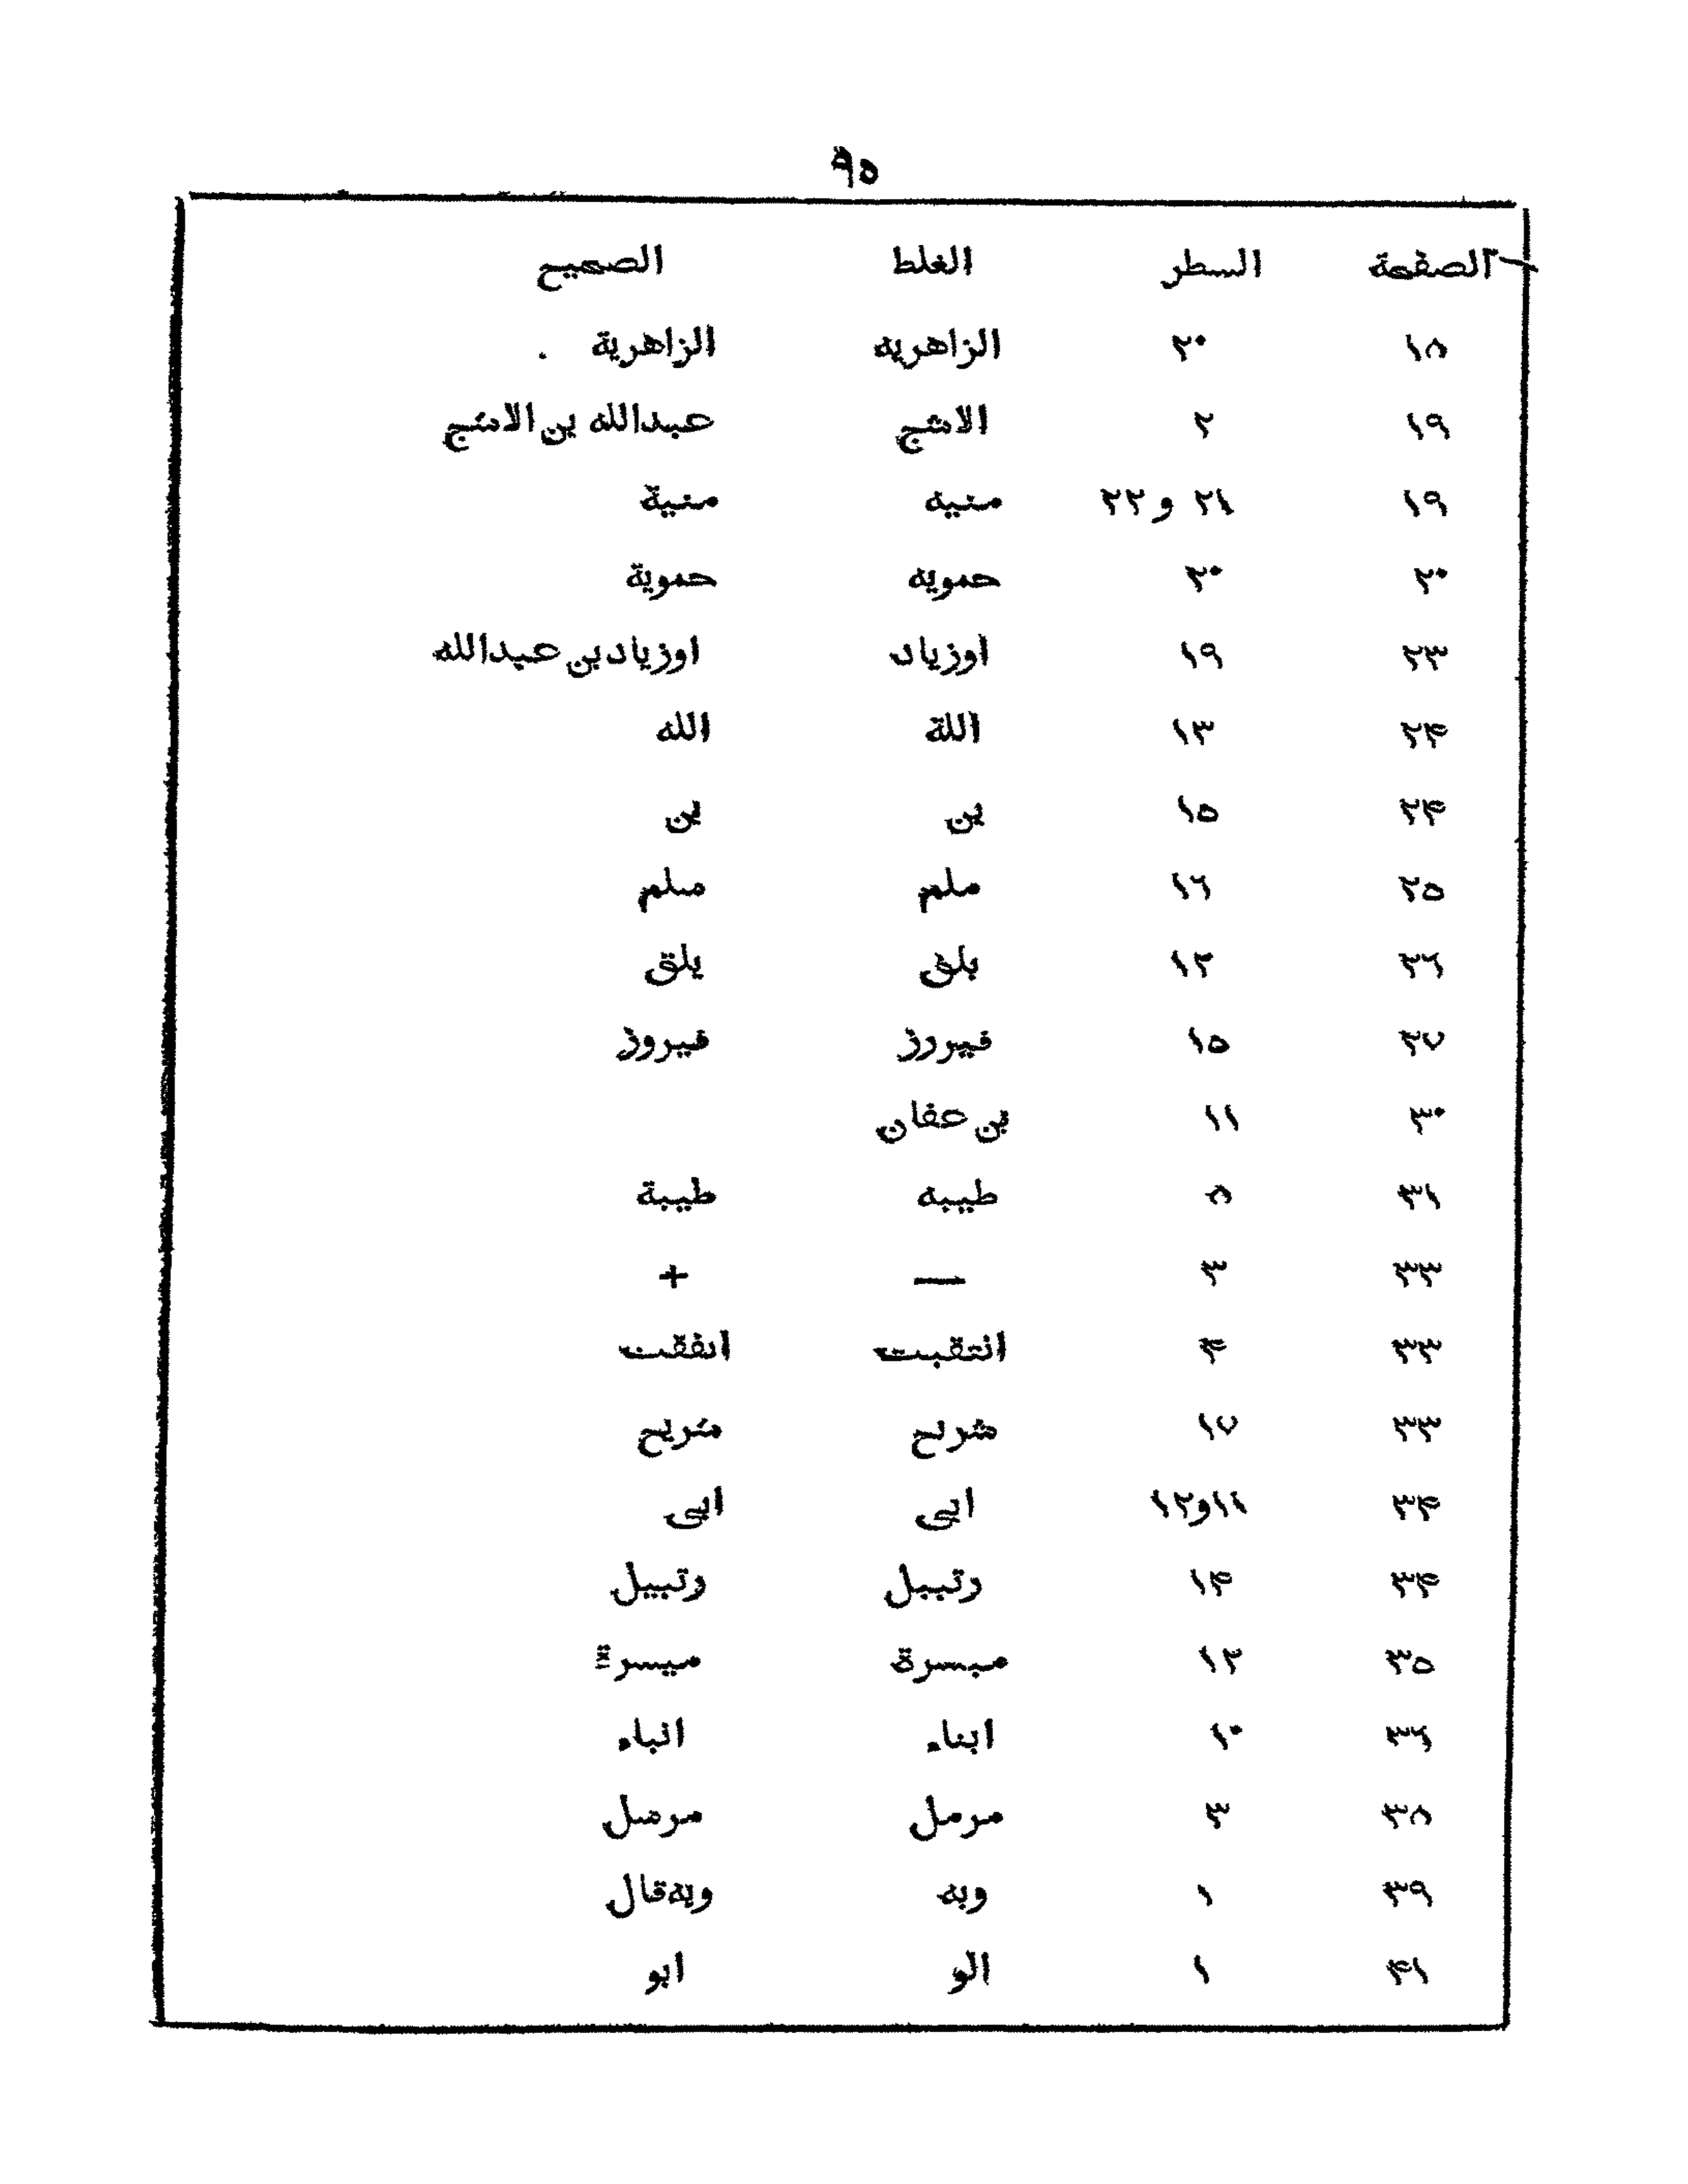 ٩٥
الصفحة السطر الغلط الصحيح
١٨ ٢٠ الزاهريه الزاهرية
١٩ ٢ الاشج عبدالله بن الاشج
١٩ ٢١ و ٢٢ منيه منية
٢٠ ٢٠ حمويه حموية
٢٣ ١٩ اوزياد اوزياد بن عبدالله
٢٤ ١٣ اللة الله
٢٤ ١٥ بن
٢٥ ١٦
٢٦ ١٢ يلق
٢٧ ١٥ فيروز
٣٠ ١١ بن عفان
٣١ ٨ طيبه طيبة
٣٣ ٣ — +
٣٣ ٤ انتقبت انفقت
٣٣ ١٧ شريح
٣٤ ١١و١٢
٣٤ ١٤ رتببل رتبيل
٣٥ ١٢ مبسرة ميسرة
٣٦ ١٠ ابناء انباء
٣٨ ٣ مرمل مرسل
٣٩ ١ وبه وبه قال
٤١ ١ الو ابو